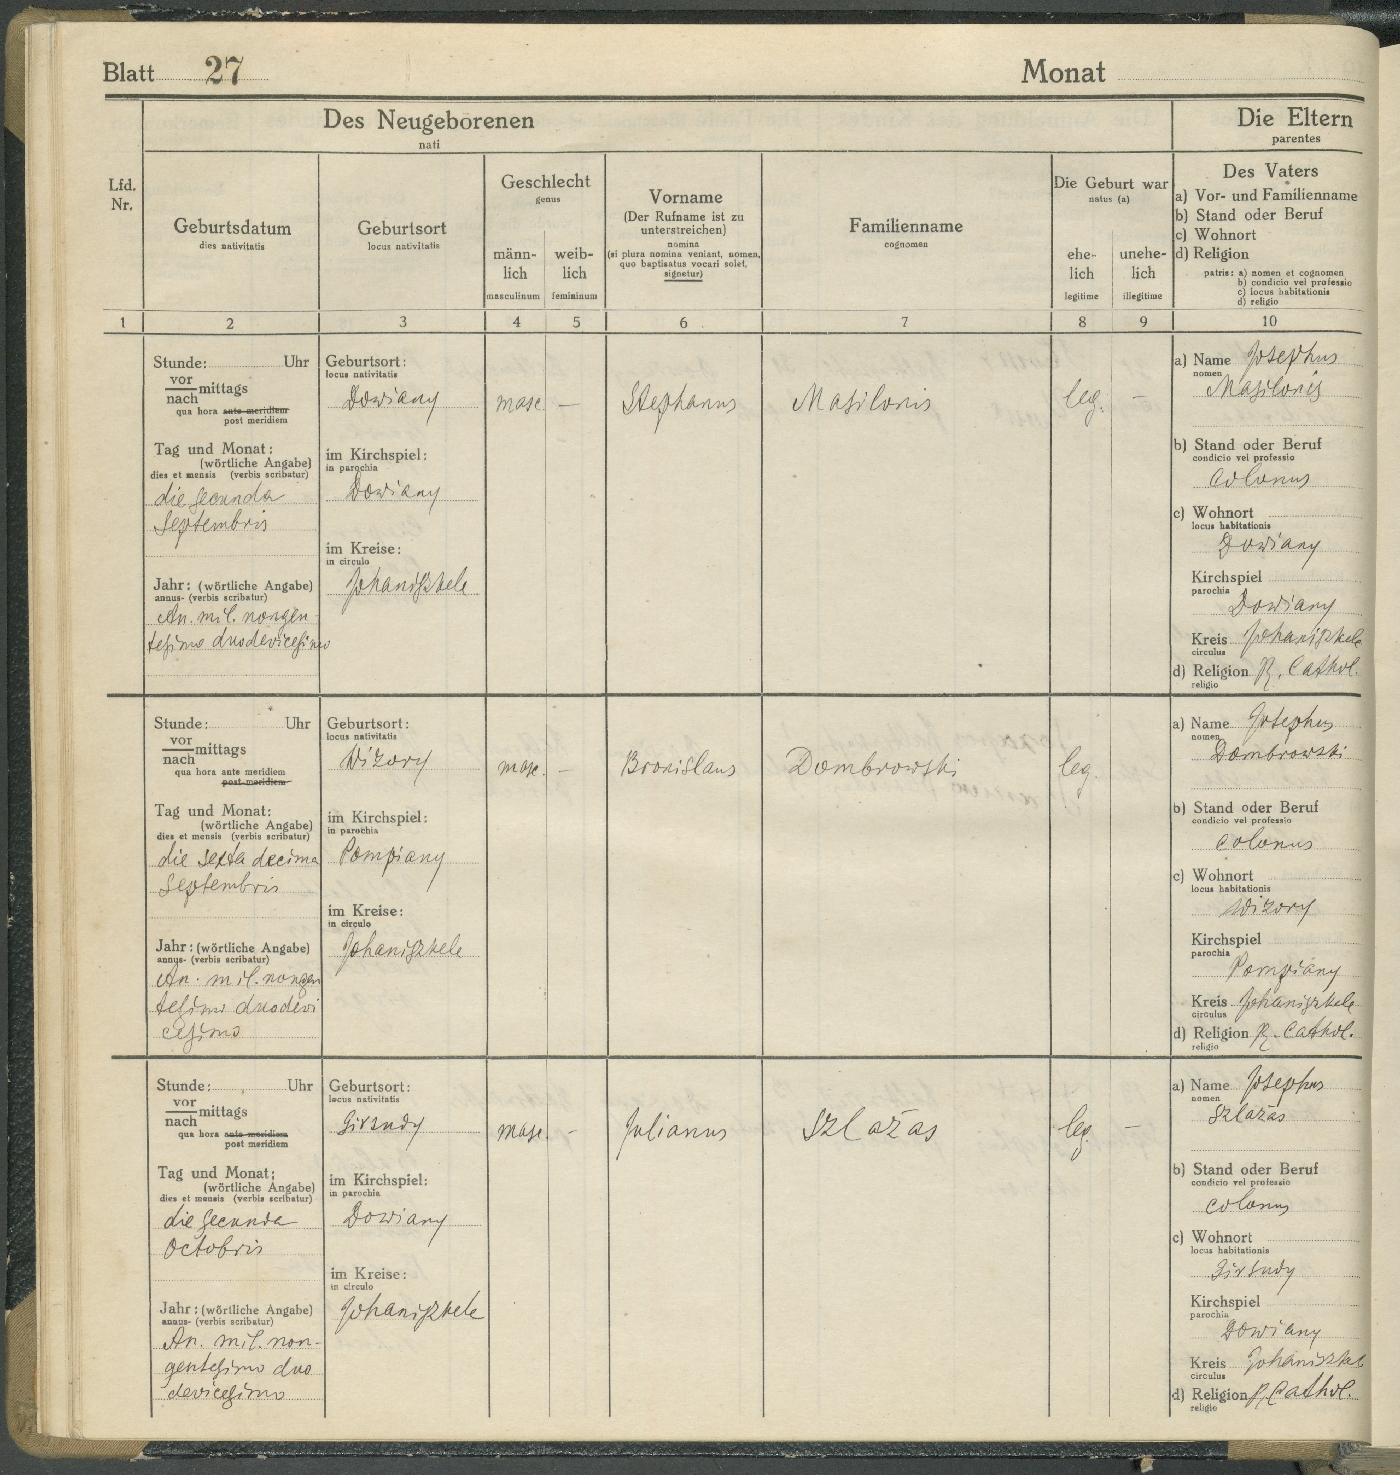 Blatt 27
Monat
Des Neugeborenen
nati
Die Eltern
parentes
Lfd.
Nr.
Geburtsdatum
dies nativitatis
Geburtsort
locus nativitatis
Geschlecht
genus
männ-
lich
masculinum
weib-
lich
femininum
Vorname
(Der Rufname ist zu
unterstreichen)
nomina
(si plura nomina veniant, nomen,
quo baptisatus vocari solet,
signetur)
Familienname
cognomen
Die Geburt war
natus (a)
ehe-
lich
legitime
unehe-
lich
illegitime
Des Vaters
a) Vor- und Familienname
b) Stand oder Beruf
c) Wohnort
d) Religion
patris: a) nomen et cognomen
b) condicio vel professio
c) locus habitationis
d) religio
1 2 3 4 5 6 7 8 9 10
Stunde: Uhr
vor
nach mittags
qua hora ante meridiem
post meridiem
Tag und Monat:
(wörtliche Angabe)
dies et mensis (verbis scribatur)
die secunda
Septembris
Jahr: (wörtliche Angabe)
annus- (verbis scribatur)
An. mil. nongen
tesimo duodevicesimo
Geburtsort:
locus nativitatis
Dowiany
im Kirchspiel:
in parochia
Dowiany
im Kreise:
in circulo
Johaniszkele
masc. —
Stephanus
Masilonis
leg. —
a) Name Josephus
nomen
Masilonis
b) Stand oder Beruf
condicio vel professio
colonus
c) Wohnort
locus habitationis
Dowiany
Kirchspiel
parochia
Dowiany
Kreis Johaniszkele
circulus
d) Religion R. Cathol.
religio
Stunde: Uhr
vor
nach mittags
qua hora ante meridiem
post meridiem
Tag und Monat:
(wörtliche Angabe)
dies et mensis (verbis scribatur)
die sexta decima
Septembris
Jahr: (wörtliche Angabe)
annus- (verbis scribatur)
An. mil. nongen
tesimo duodevi
cesimo
Geburtsort:
locus nativitatis
Wizory
im Kirchspiel:
in parochia
Pompiany
im Kreise:
in circulo
Johaniszkele
masc. —
Bronislaus
Dombrowski
leg.
a) Name Josephus
nomen
Dombrowski
b) Stand oder Beruf
condicio vel professio
colonus
c) Wohnort
locus habitationis
Wizory
Kirchspiel
parochia
Pompiany
Kreis Johaniszkele
circulus
d) Religion R. Cathol.
religio
Stunde: Uhr
vor
nach mittags
qua hora ante meridiem
post meridiem
Tag und Monat:
(wörtliche Angabe)
dies et mensis (verbis scribatur)
die secunda
Octobris
Jahr: (wörtliche Angabe)
annus- (verbis scribatur)
An. mil. non-
gentesimo duo
devicesimo
Geburtsort:
locus nativitatis
Girsudy
im Kirchspiel:
in parochia
Dowiany
im Kreise:
in circulo
Johaniszkele
masc. —
Julianus
Szlažas
leg. —
a) Name Josephus
nomen
Szlažas
b) Stand oder Beruf
condicio vel professio
colonus
c) Wohnort
locus habitationis
Girsudy
Kirchspiel
parochia
Dowiany
Kreis Johaniszkel
circulus
d) Religion R. Cathol.
religio